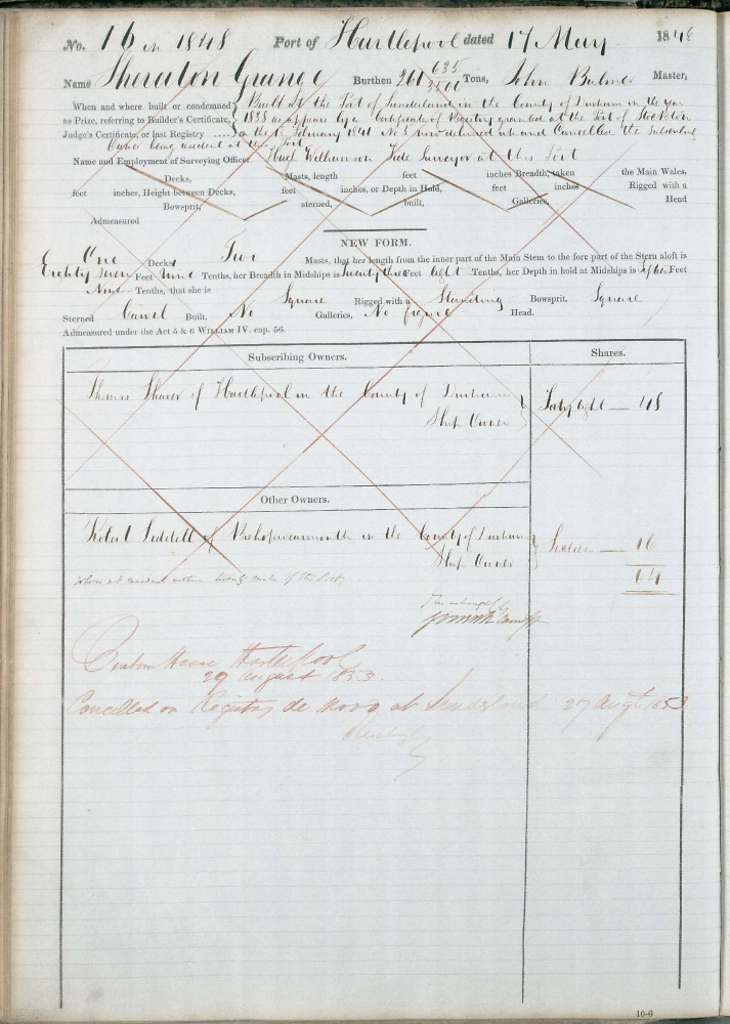 No. 16 in 1848 Port of Hartlepool dated 17 May 1848
Name Sheraton Grange Burthen 261 635/3500 Tons, John Bulmer Master,
When and where built or condemned Built at the Port of Sunderland in the County of Durham in the year
as Prize, referring to Builder's Certificate, 1838 as appears by a Certificate of Registry granted at the Port of Stockton
Judge's Certificate, or last Registry ..... February 1841 No 3 now delivered up and Cancelled the Subscribing
Owner being resident at this Port
Name and Employment of Surveying Officer Hugh Williamson Tide Surveyor at this Port
Decks, Masts, length feet inches Breadth, taken the Main Wales,
feet inches, Height between Decks, feet inches, or Depth in Hold, feet inches Rigged with a
Bowsprit, sterned, built, Galleries, Head
Admeasured
NEW FORM.
One Decks Two Masts, that her length from the inner part of the Main Stem to the fore part of the Stern aloft is
Eighty seven Feet nine Tenths, her Breadth in Midships is twenty three Feet eight Tenths, her Depth in hold at Midships is fifteen Feet
Nine Tenths, that she is Square Rigged with a Standing Bowsprit, Square
Sterned Carvel Built, No Galleries, No figure Head.
Admeasured under the Act 5 & 6 WILLIAM IV. cap. 56.
Subscribing Owners. Shares.
of Hartlepool in the County of Durham
Ship Owner Forty eight — 48
Other Owners.
Robert Liddell of Bishopwearmouth in the County of Durham
Ship Owner Sixteen — 16
64
Custom House Hartlepool
29 August 1853.
Cancelled on Registry de novo at Sunderland 27 Augt 1853
10-6